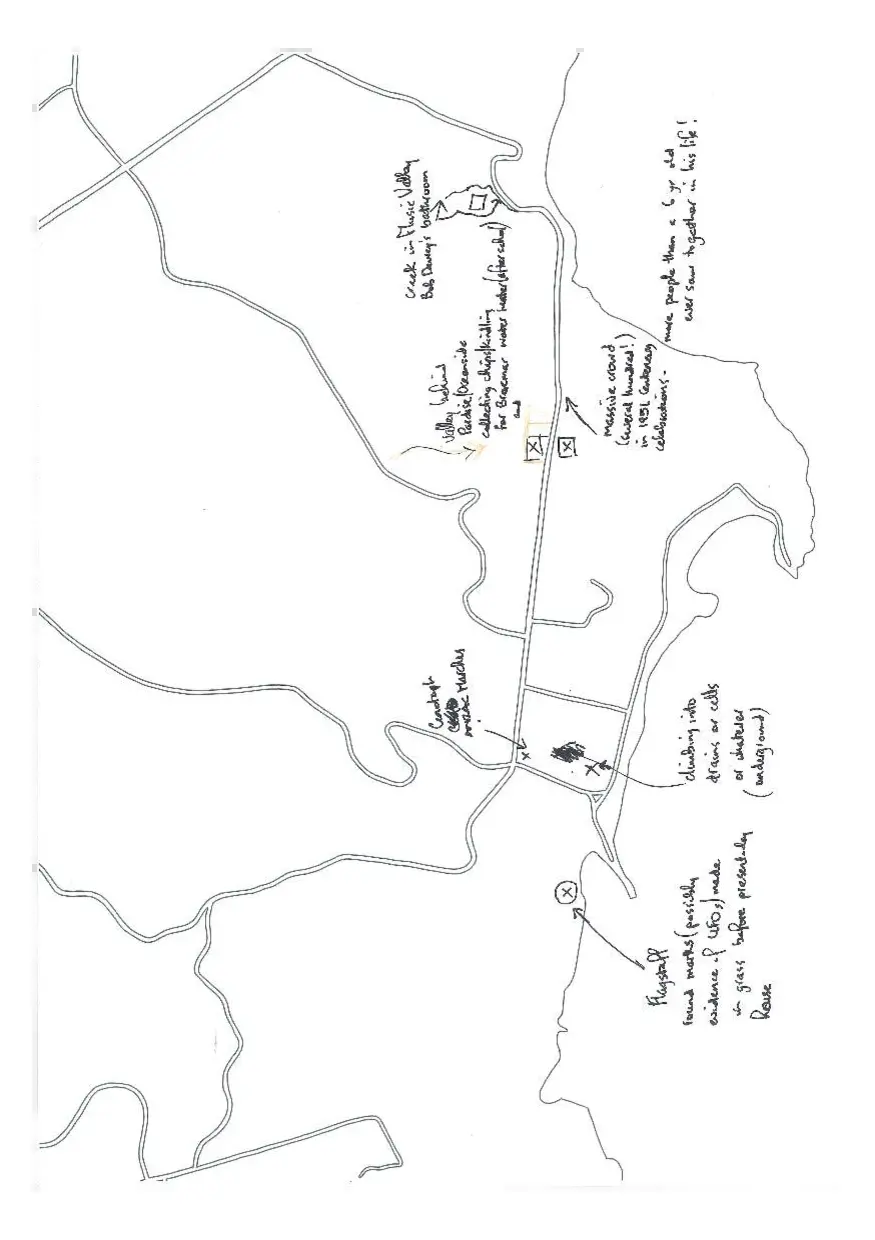 Crack in Music Valley
Bob Dewey's bathroom
Valley behind
Paradise/Oceanside
collecting chips/kindling
for Braemar water heater (after school)
and
Cenotaph
ANZAC Marches
Massive crowd
(several hundred!)
in 1951 Centenary
celebrations -
more people than a 6 yr old
ever saw together in his life!
climbing into
drains or cells
or whatever
(underground)
Flagstaff
found marks (possibly
evidence of UFOs) made
in grass before present day
house